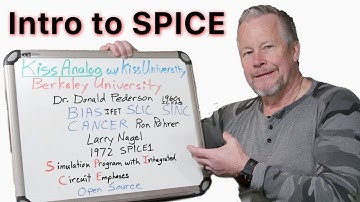 Intro to SPICE
Kiss Analog w/ Kiss University
Berkeley University
Dr. Donald Pederson 1960s
BIAS JFET SLIC SINC
CANCER Ron Rohrer
Larry Nagel
1972 SPICE1
Simulation Program with Integrated
Circuit Emphases
Open Source